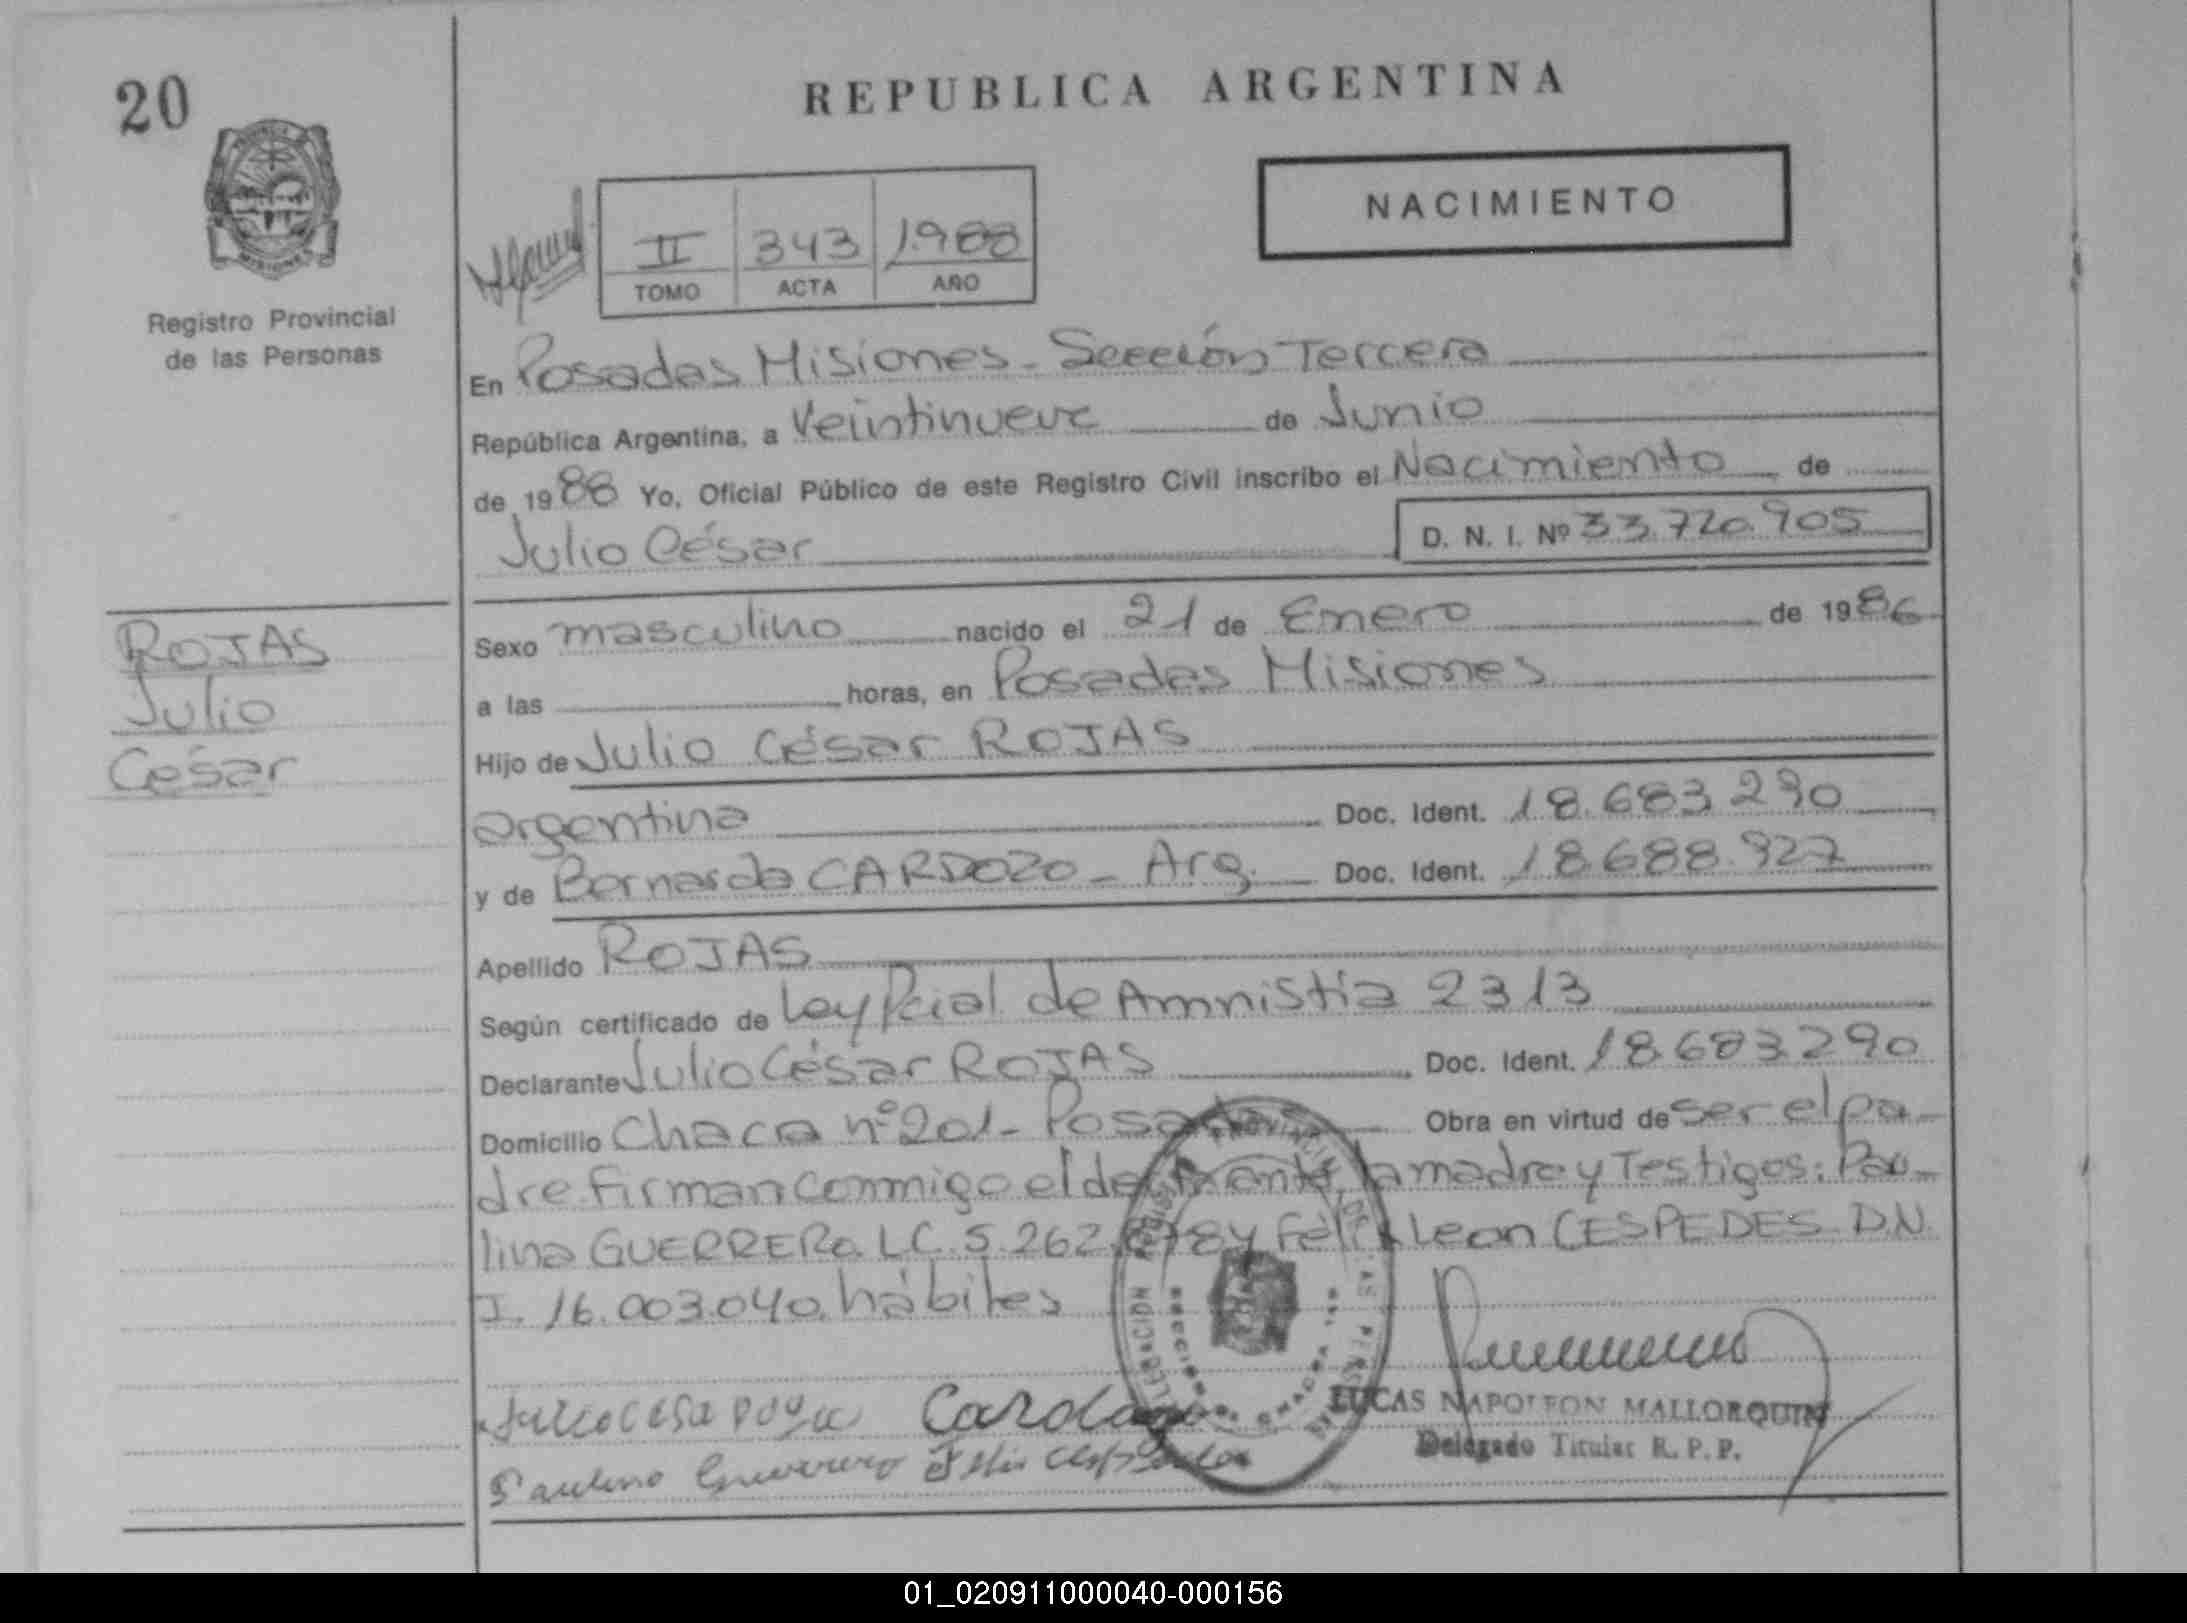 20
REPUBLICA ARGENTINA
NACIMIENTO
II 343 1.988
TOMO ACTA AÑO
MISIONES
Registro Provincial
de las Personas
En Posadas Misiones - Sección Tercera
República Argentina, a Veintinueve de Junio
de 1988 Yo, Oficial Público de este Registro Civil inscribo el Nacimiento de
Julio César D. N. I. Nº 33.720.905
ROJAS
Julio
César
Sexo masculino nacido el 21 de Enero de 1986
a las horas, en Posadas Misiones
Hijo de Julio César ROJAS
argentina Doc. Ident. 18.683.290
y de Bernarda CARDOZO - Arg. Doc. Ident. 18.688.927
Apellido ROJAS
Según certificado de Ley Pcial. de Amnistía 2313
Declarante Julio César ROJAS Doc. Ident. 18.683.290
Domicilio Chaca nº 201 - Posadas Obra en virtud de ser el pa-
dre. Firman conmigo el la madre y Testigos: Pau-
lina GUERRERO. L.C. 5.262 y Felix Leon CESPEDES D.N.
I. 16.003.040, hábiles
LUCAS NAPOLEON MALLORQUIN
Delegado Titular R. P. P.
01_020911000040-000156